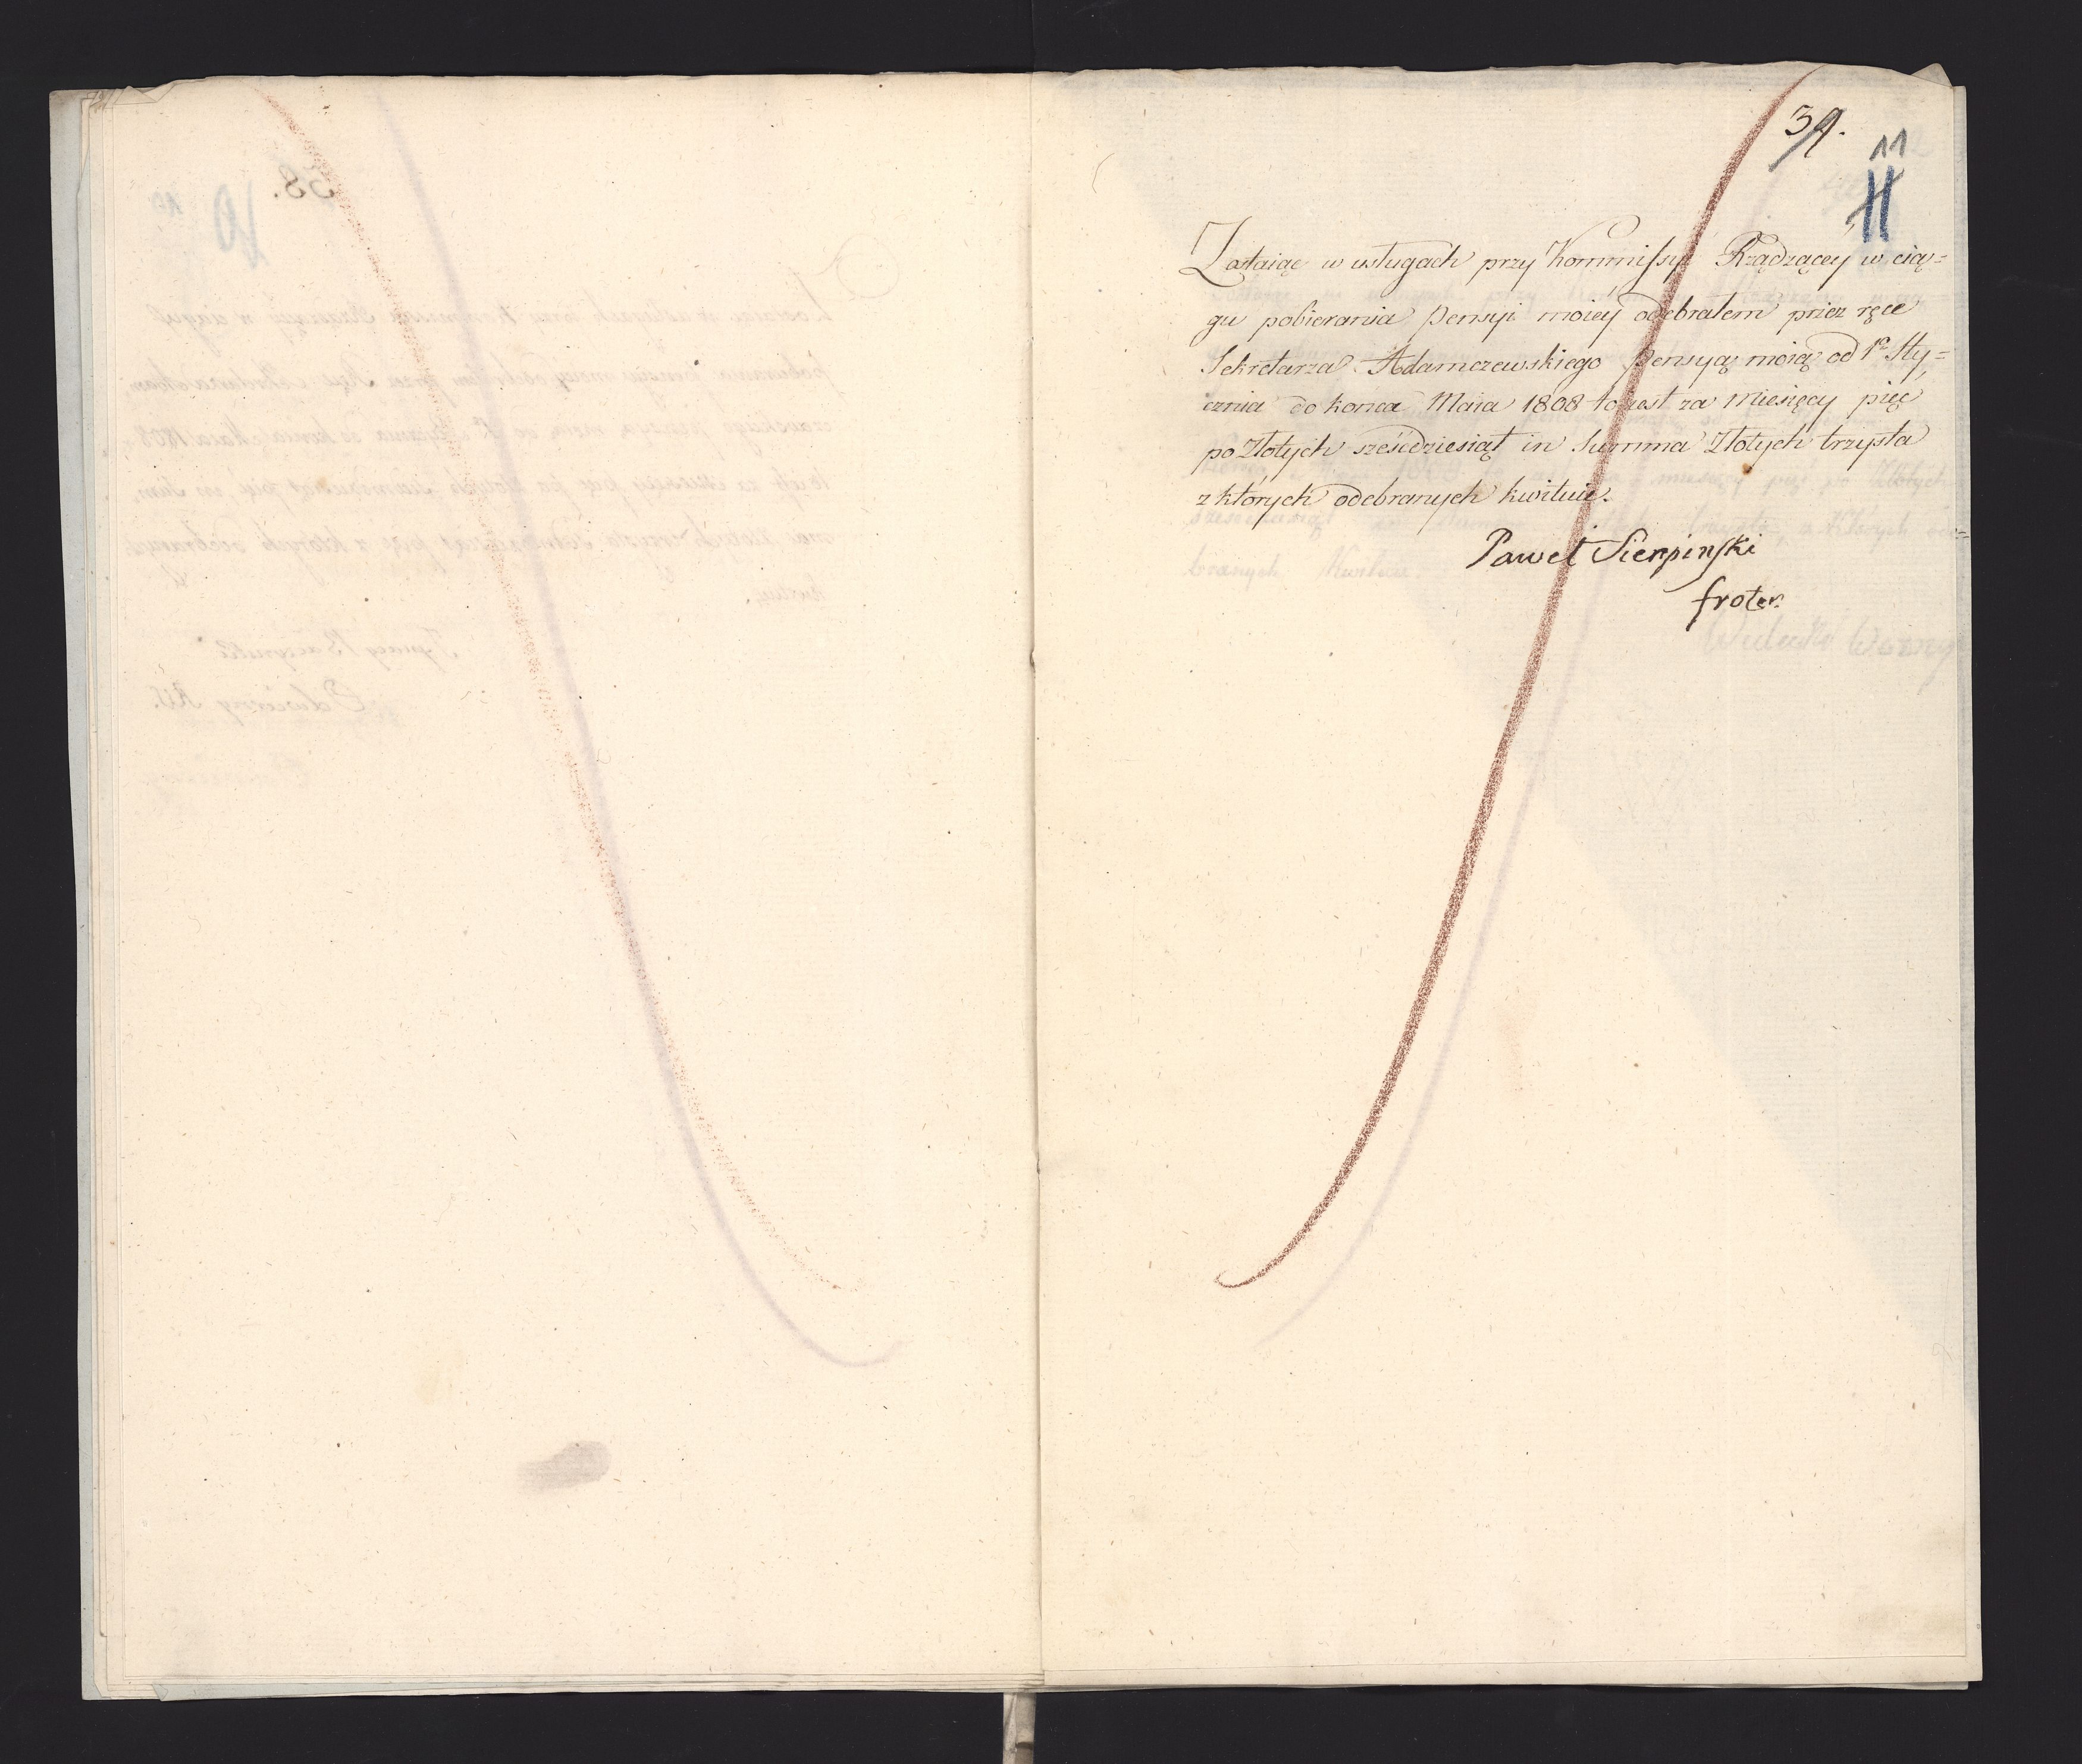 39.
11
11
Zostaiąc w usługach przy Kommissyi Rządzącey w cią=
gu pobierania Pensyi moiéy odebrałem przez ręce
Sekretarza Adamczewskiego Pensyą moią od 1º Sty=
cznia do końca Maia 1808 to iest za Miesięcy pięć
po Złotych sześćdziesiąt in Summa Złotych trzysta
z których odebranych kwituię.
Paweł Sierpinski
froter